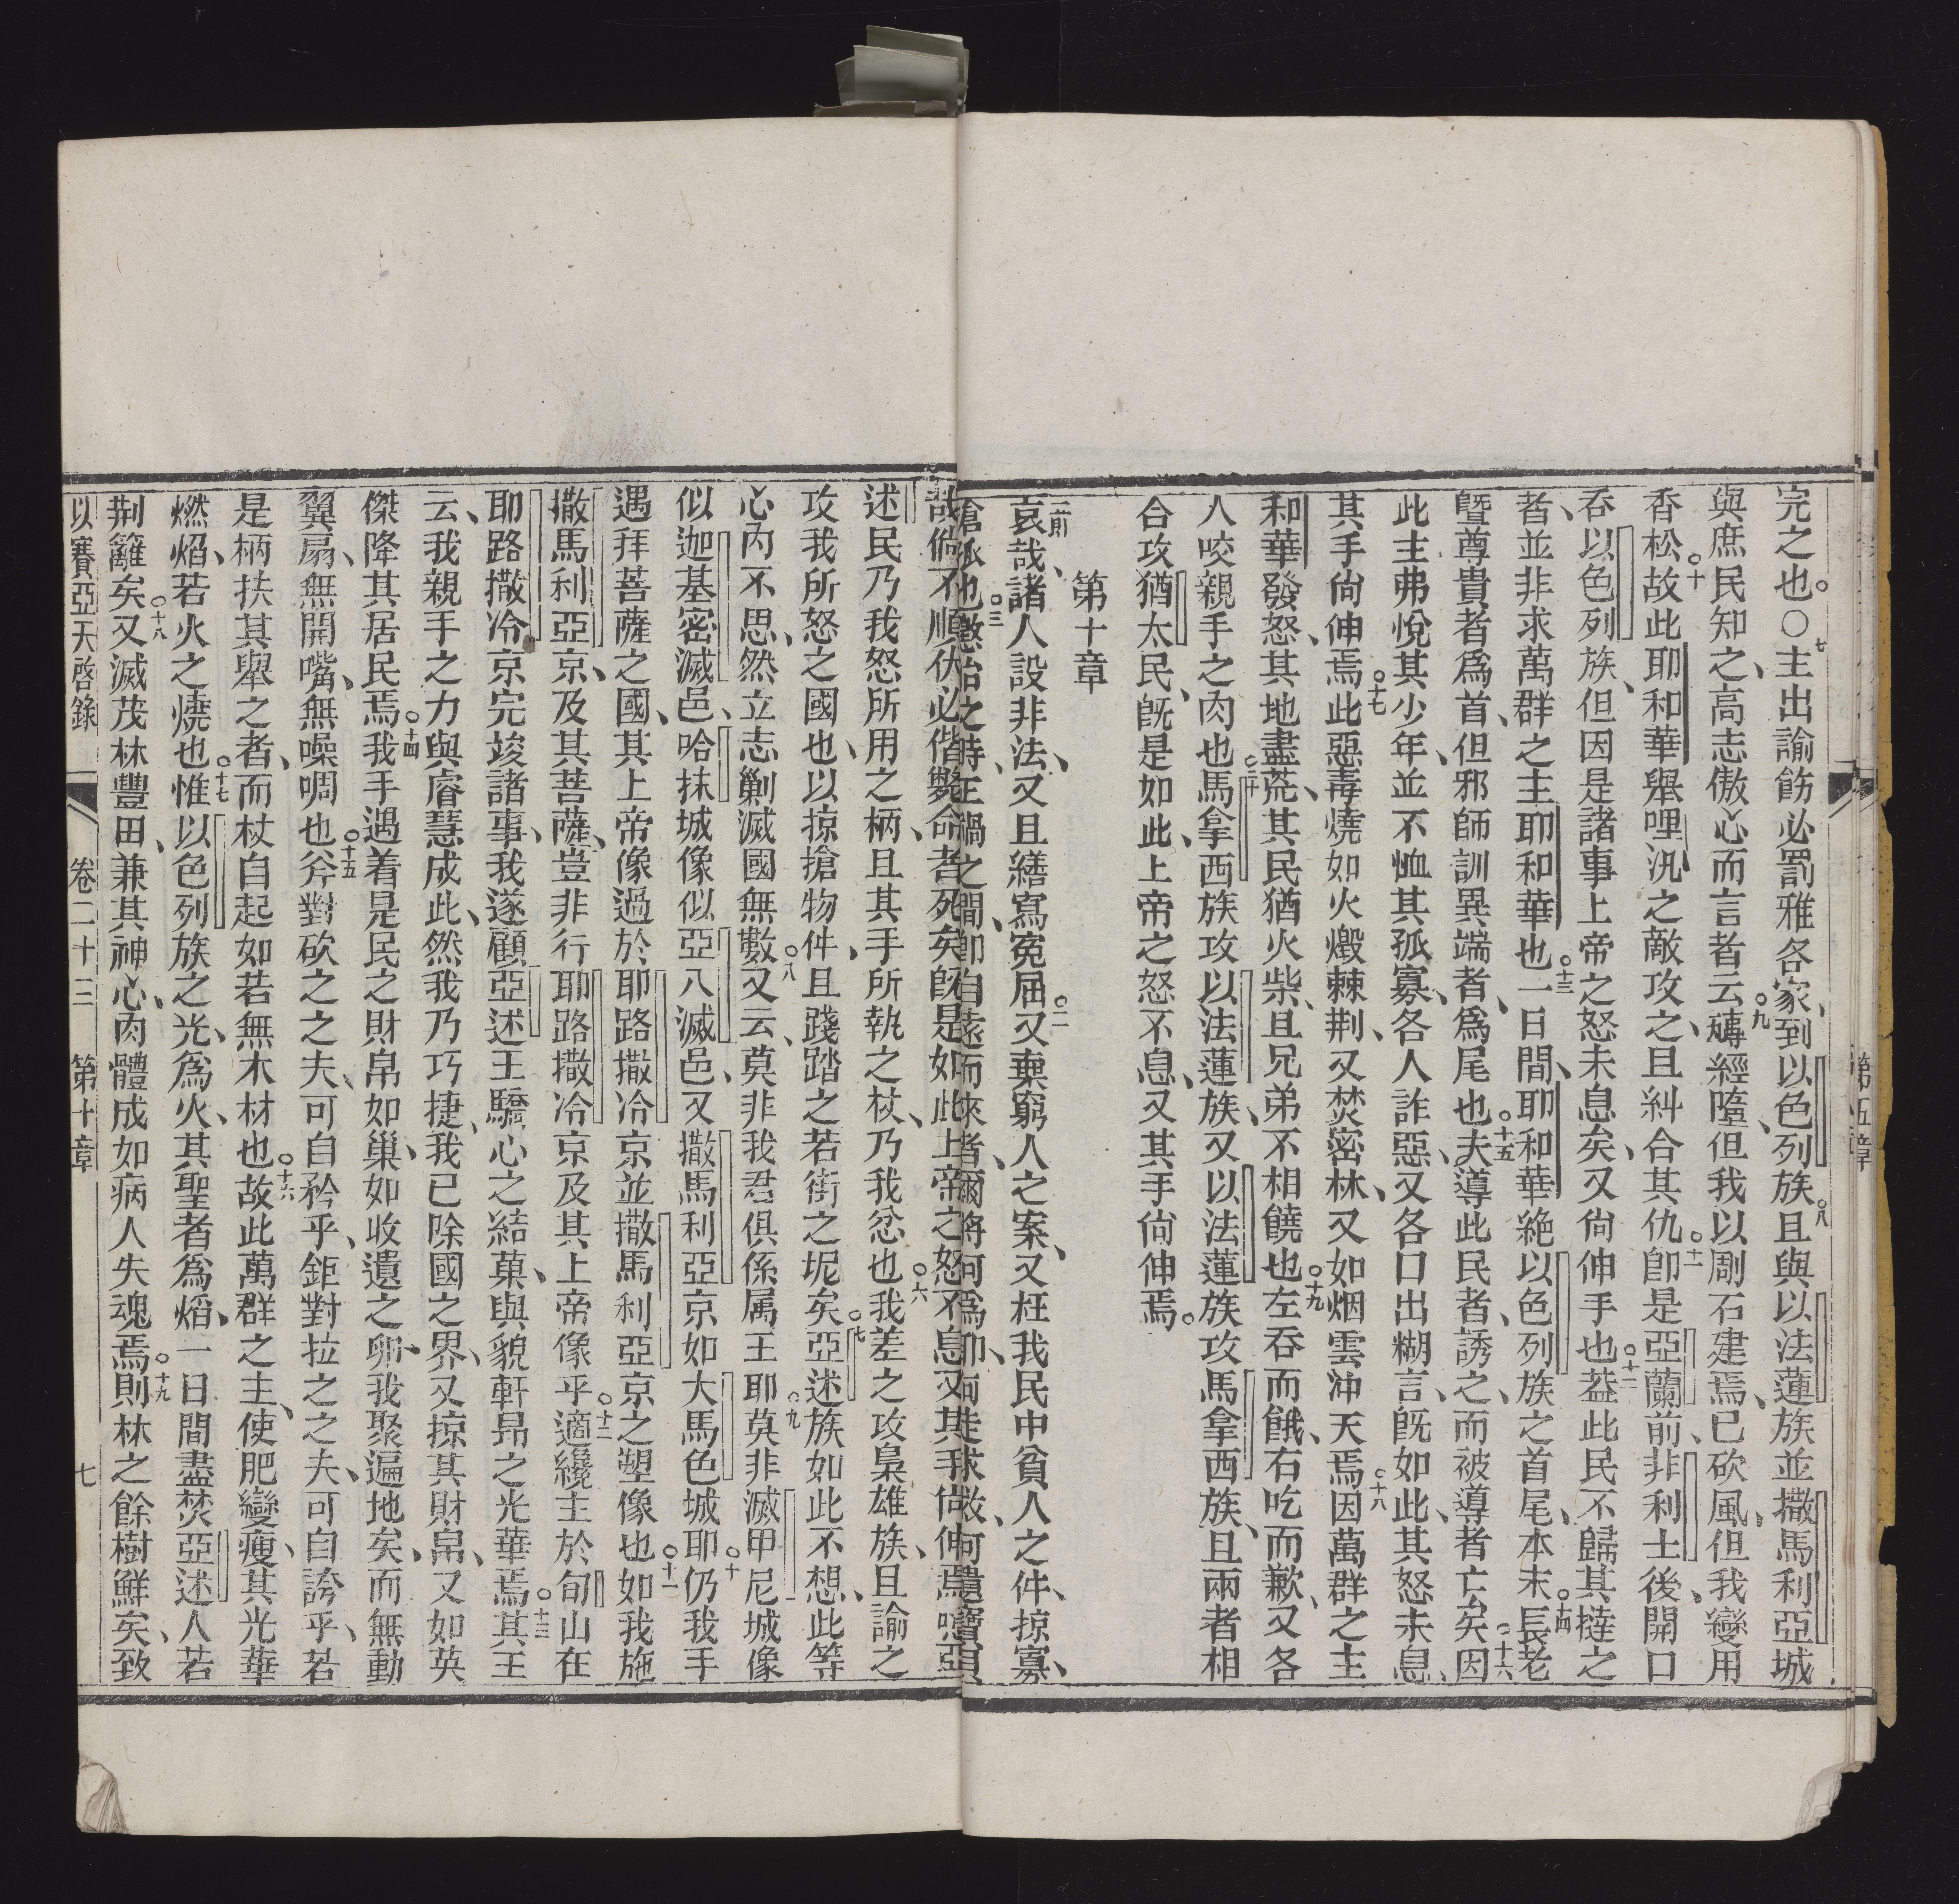 完之也。○七主出諭飭必罰雅各家、到以色列族。八且與以法蓮族並撒馬利亞城
與庶民知之、高志傲心而言者云、九磚經墮、但我以劚石建焉、已砍風、但我變用
香松。十故此耶和華舉哩汛之敵攻之、且糾合其仇。十一卽是亞蘭前、非利士後、開口
吞以色列族、但因是諸事上帝之怒未息矣、又尙伸手也。十二葢此民不歸其撻之
者、並非求萬群之主耶和華也。十三一日間、耶和華絶以色列族之首尾、本末。十四長老
曁尊貴者爲首、但邪師訓異端者、爲尾也。十五夫導此民者、誘之、而被導者亡矣。十六因
此主弗悅其少年、並不恤其孤寡、各人詐惡、又各口出糊言、旣如此、其怒未息、
其手尙伸焉。十七此惡毒燒如火燬棘荆、又焚密林、又如烟雲沖天焉。十八因萬群之主
和華發怒、其地盡荒、其民猶火柴、且兄弟不相饒也。十九左吞而餓、右吃而歉、又各
人咬親手之肉也。二十馬拿西族攻以法蓮族、又以法蓮族攻馬拿西族、且兩者相
合攻猶太民、旣是如此、上帝之怒不息、又其手尙伸焉。
第十章
哀哉、諸人設非法、又且繕寫寃屈。二又棄窮人之案、又枉我民中貧人之件、掠寡、
搶孤也。三愍怡之時、正禍之間、卽自遠而來者、爾將何爲卽、何走求救、何遺寶貝
哉。倘不順伏、必偕斃命者死矣、旣是如此、上帝之怒不息、又其手尙伸焉。噫亞
述民乃我怒所用之柄、且其手所執之杖、乃我忿也。六我差之攻梟雄族、且諭之
攻我所怒之國也、以掠搶物件、且踐踏之若街之坭矣。七亞述族如此不想、此等
心內不思、然立志剿滅國無數。八又云、莫非我君俱係属王耶。九莫非滅甲尼城像
似迦基密滅邑、哈抹城像似亞八滅邑、又撒馬利亞京如大馬色城耶。十仍我手
遇拜菩薩之國、其上帝像過於耶路撒冷京並撒馬利亞京之塑像也。十一如我施
撒馬利亞京、及其菩薩、豈非行耶路撒冷京及其上帝像乎。十二適纔主於旬山在
耶路撒冷京完竣諸事、我遂顧亞述王驕心之結菓、與貌軒昂之光華焉。十三其王
云、我親手之力與睿慧成此、然我乃巧捷、我已除國之界、又掠其財帛、又如英
傑降其居民焉。十四我手遇着是民之財帛如巢、如收遺之卵、我聚遍地矣、而無動
翼扇、無開嘴、無噪啁也。十五斧對砍之之夫、可自矜乎、鉅對拉之之夫、可自誇乎、若
是柄扶其舉之者、而杖自起如若無木材也。十六故此萬群之主、使肥變瘦、其光華
燃熖、若火之燒也。十七惟以色列族之光、爲火、其聖者爲熖、一日間盡焚亞述人若
荆籬矣。十八又滅茂林豐田、兼其神心、肉體成如病人失魂焉。十九則林之餘樹鮮矣、致
以賽亞天啓錄 卷二十三 第十章 七